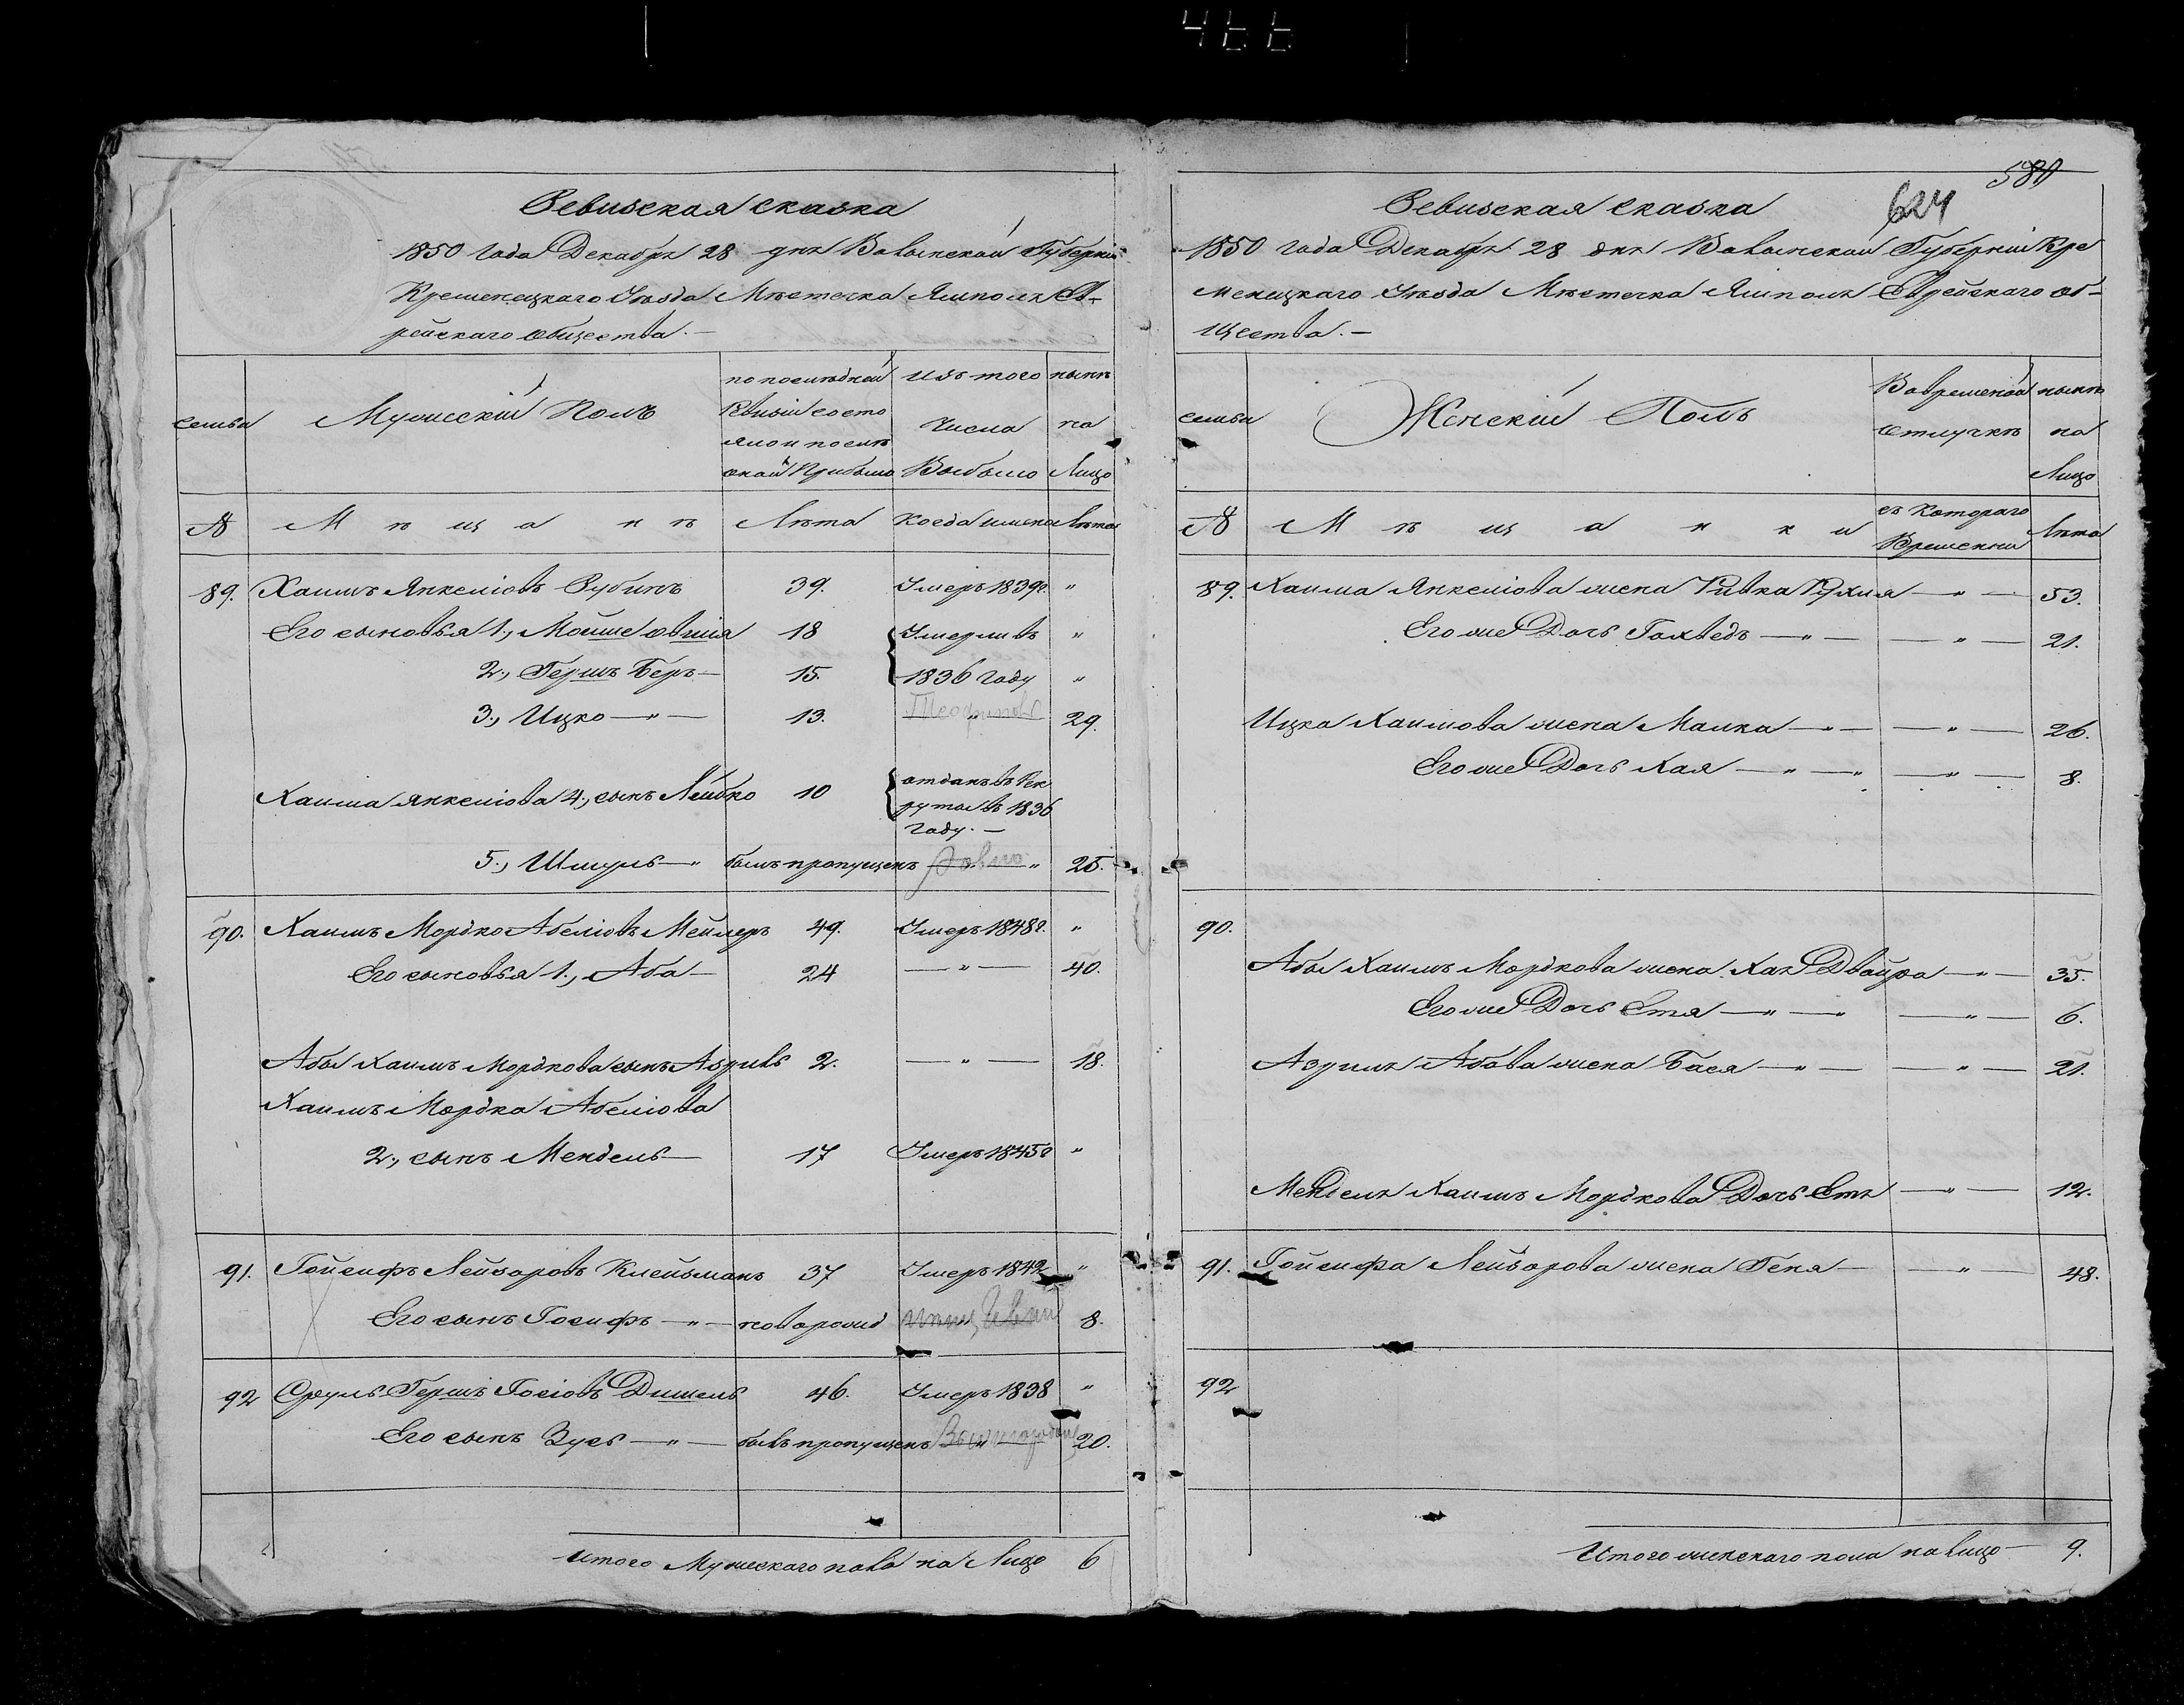 466
Ревизская сказка
1850 года Декабря 28 дня Волынской Губерніи
Кременецкаго Уѣзда Мѣстечка Ямполя Ев-
рейскаго общества.—
семьи
Мужескій Полъ
по послѣдней
Ревизіи состо
яло и послѣ
оной Прибыло
изъ того
Числа
Выбыло
нынѣ
на
Лицо
№ Мѣщанѣ Лѣта Когда именно Лѣта
89. Хаимъ Янкеліовъ Рубинъ 39. Умеръ 1839г. "
Его сыновья 1., Мойше овшія 18 Умерли въ "
2., Гершъ Беръ — 15. 1836 году "
3., Ицко — " — 13. " 29.
Хаима Янкеліова 4., сынъ Лейбко 10 отданъ въ Рек
руты въ 1836
году.—
5., Шмуль — " былъ пропущенъ Ровно " 25.
90. Хаимъ Мордко Абеліовъ Мейлеръ 49. Умеръ 1848г. "
Его сыновья 1., Аба — 24 — " — 40.
Абы Хаимъ Мордкова сынъ Азриль 2. — " — 18.
Хаимъ Мордка Абеліова
2., сынъ Мендель — 17 Умеръ 1845г "
91. Іойсифъ Лейзоровъ Клейзманъ 37 Умеръ 1842 "
Его сынъ Іосифъ — " — новорожд 8.
92 Сруль Гершъ Іосіовъ Дишель 46. Умеръ 1838 "
Его сынъ Зусь — " — былъ пропущенъ 20.
Итого Мужескаго пола на Лицо 6
580
624
Ревизская сказка
1850 года Декабря 28 дня Волынской Губерніи Кре
менецкаго Уѣзда Мѣстечка Ямполя Еврейскаго об-
щества.—
семьи
Женскій Полъ
Во временной
отлучкѣ
нынѣ
на
Лицо
№ Мѣщанки
съ Котораго
Времени
Лѣта
89. Хаима Янкеліова жена Ривка Рухля — " — 53.
Его же Дочь Іохведъ — " — — " — 21.
Ицка Хаимова жена Малка — " — — " — 26.
Его же Дочь Хая — " — " — " — 8.
90.
Абы Хаимъ Мордкова жена Хая Двойра — " — 35.
Его же Дочь Етя — " — " — " — 6.
Азриля Абова жена Бася — " — — " — 21.
Менделя Хаимъ Мордкова Дочь Етя — " — 12.
91. Іойсифа Лейзорова жена Геня — — " — 48.
92
Итого женскаго пола на лицо — 9.